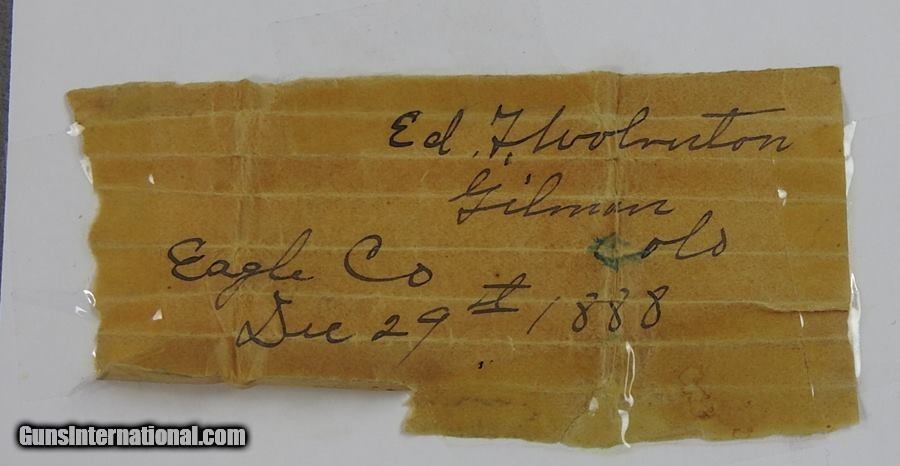 Ed. F. Wolverton
Gilman
Eagle Co Colo
Dec 29th 1888
GunsInternational.com